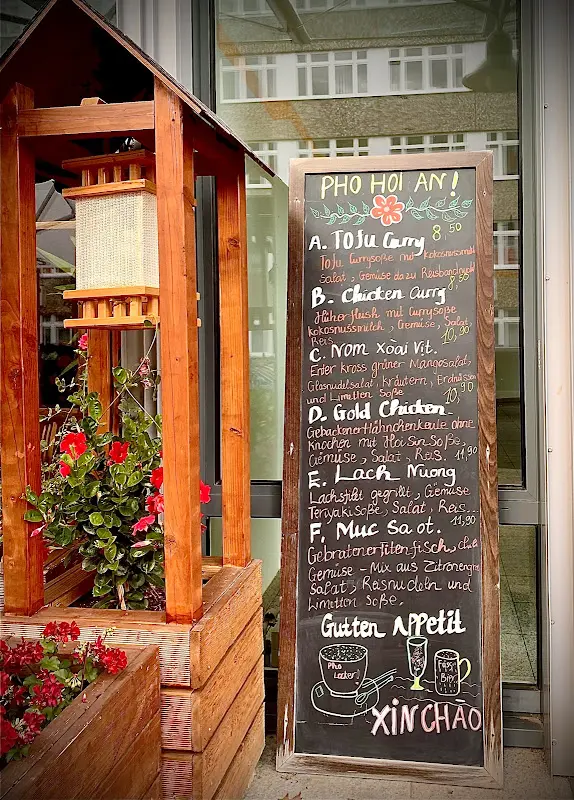 PHO HOI AN!
A. Tofu Curry 8,50
Tofu Currysoße mit Kokosnussmilch
Salat, Gemüse dazu Reisbandnudel
B. Chicken Curry 8,50
Hüherfleish mit Currysoße
Kokosnussmilch, Gemüse, Salat,
Reis 10,90
C. Nom Xoài Vit.
Enter Kross grüner Mangosalat,
Glasnudelsalat, Kräutern, Erdnüsse
und Limetten Soße 10,90
D. Gold Chicken
Gebackener Hähnchenkeule ohne
Knochen mit Hoi Sin Soße,
Gemüse, Salat, Reis. 11,90
E. Lach Nuong
Lachsfilet gegrillt, Gemüse
Teriyaki Soße, Salat, Reis...
F. Muc Sa ot. 11,90
Gebratener Titenfisch,
Gemüse - Mix aus Zitronengras
Salat, Reisnudeln und
Limetten Soße.
Gutten Appetit
Pho
Lecker
Fass
Bier
XIN CHÀO